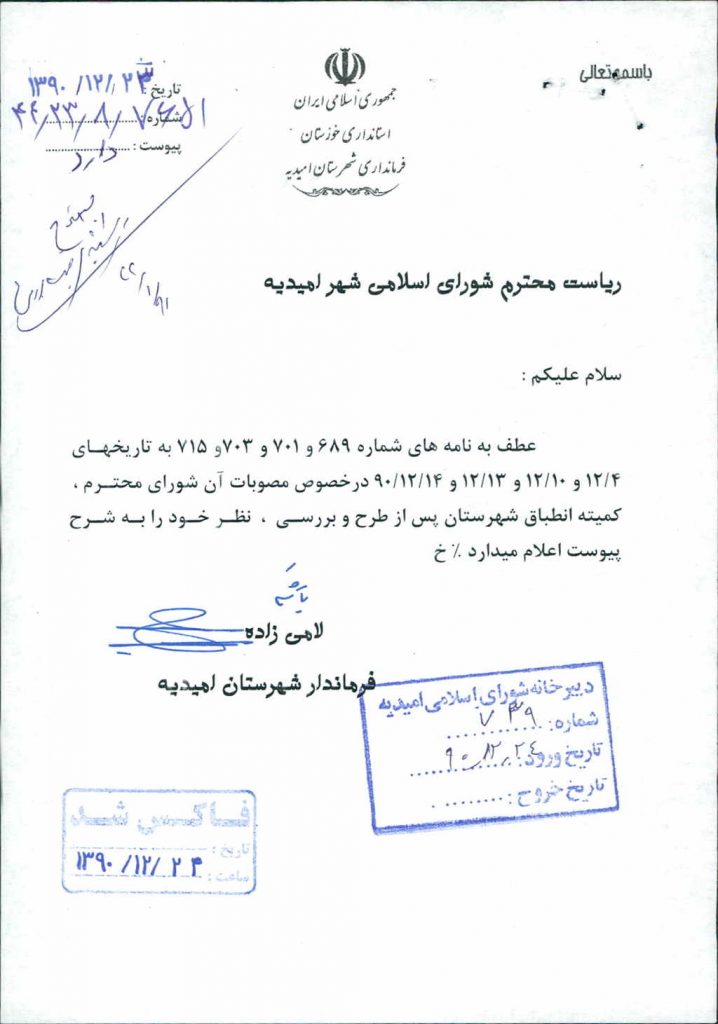 باسمه تعالی
جمهوری اسلامی ایران
استانداری خوزستان
فرمانداری شهرستان امیدیه
تاریخ : ۱۳۹۰/۱۲/۲۳
شماره :
پیوست : دارد
۹۱/۱/۲۲
ریاست محترم شورای اسلامی شهر امیدیه
سلام علیکم :
عطف به نامه های شماره ۶۸۹ و ۷۰۱ و ۷۰۳و ۷۱۵ به تاریخهای
۱۲/۴ و ۱۲/۱۰ و ۱۲/۱۳ و ۹۰/۱۲/۱۴ درخصوص مصوبات آن شورای محترم ،
کمیته انطباق شهرستان پس از طرح و بررسی ، نظر خود را به شرح
پیوست اعلام میدارد ٪ خ
لامی زاده
فرماندار شهرستان امیدیه
دبیرخانه شورای اسلامی امیدیه
شماره: ۷۳۹
تاریخ ورود: ۹۰،۱۲،۲۴
تاریخ خروج :
فاکس شد
تاریخ :
ساعت : ۱۳۹۰/۱۲/۲۴